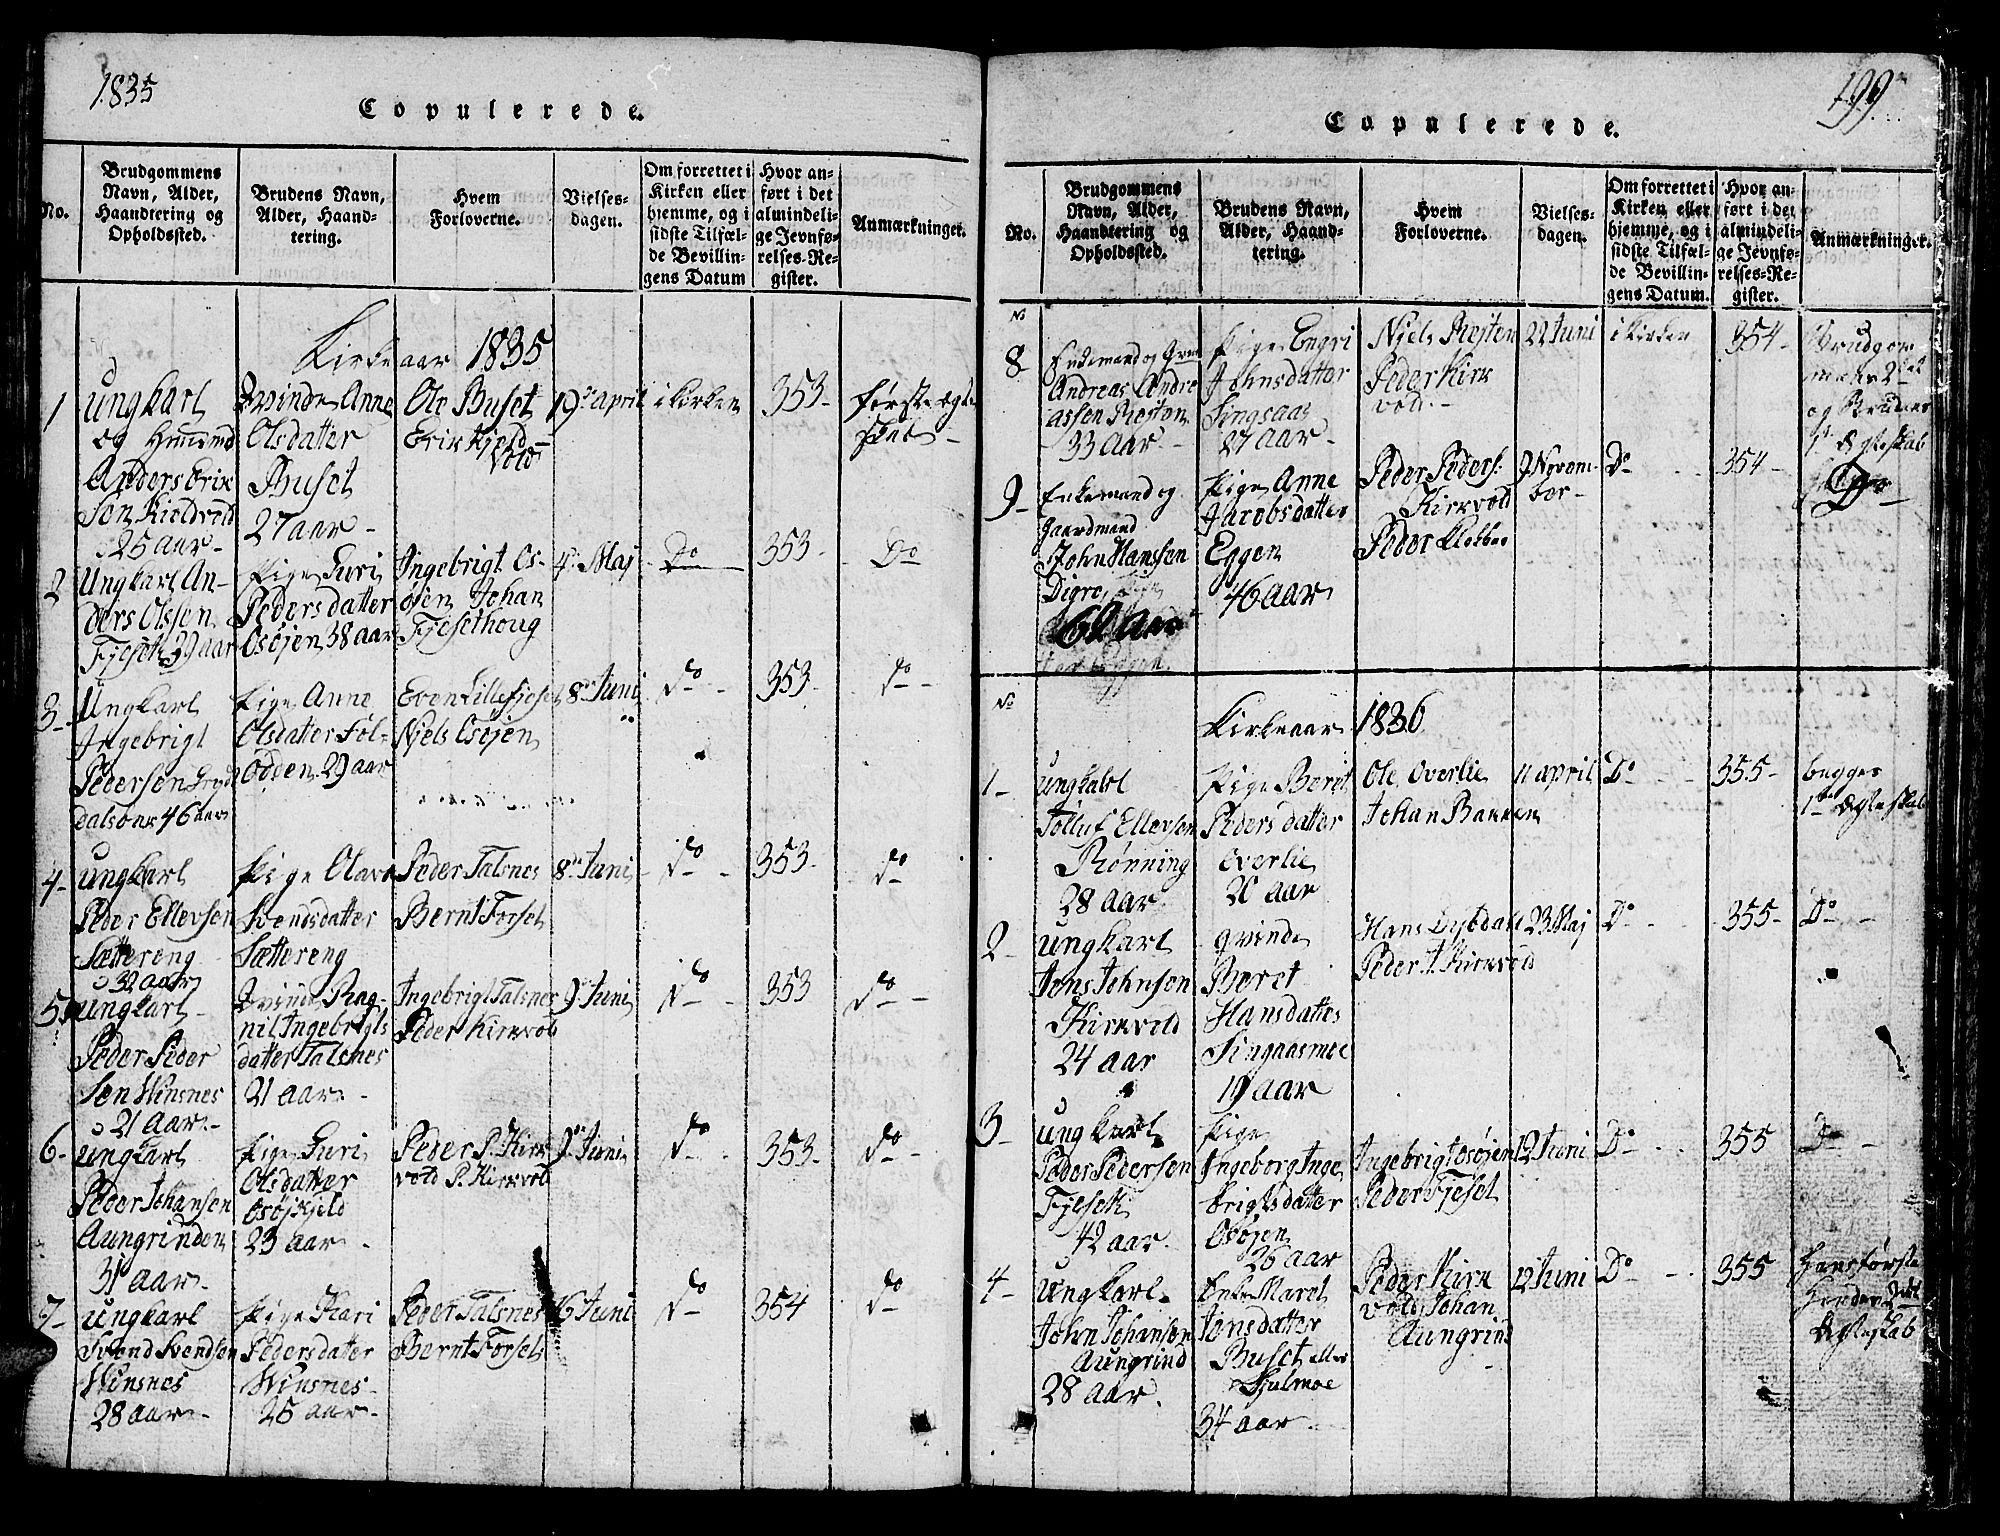 1835
Copulerede.
No.
Brudgommens Navn, Alder, Haandtering og Opholdssted.
Brudens Navn, Alder, Haandtering.
Hvem Forloverne.
Vielsesdagen.
Om forrettet i Kirken eller hjemme, og i sidste Tilfælde Bevillingens Datum
Hvor anført i det almindelige Jevnførelses-Register.
Anmærkninger.
Kirkeaar 1835
1
Ungkarl
og Huusmd
Anders Erik
sen Kieldvold
25 aar
Qvinde Anne
Olsdatter
Buset
27 aar
Ole Buset
Erik Kjeld-
vold
19de april
i Kirken
353
første ægte
skab
2
Ungkarl An-
ders Olssen
Fjeset 39 aar
Pige Guri
Peders datter
Osøjen 38 aar
Ingebrigt Os-
øjen Johan
Fjesethoug
4de Maj
Do
353
Do
3
Ungkarl
Ingebrigt
Pedersen
dalsøner 46 aar
Pige Anne
Olsdatter Føl-
odden 29 aar
Even Lillefjeset
Njels Osøjen
8de Juni
do
353
do
4
Ungkarl
Peder Ellevsen
Sættereng
32 aar
Pige Olava
Svendsdatter
Sættereng
Peder Talsnes
Bernt Forset
8de Juni
do
353
do
5
Ungkarl
Peder Peder
sen Winsnes
21 aar
Qvinde Rag-
nil Ingebrigts
datter Talsnes
21 aar
Ingebrigt Talsnes
Peder Kirkvold
9de Juni
do
353
do
6
Ungkarl
Peder Johansen
Aungrinden
31 aar
Pige Guri
Olsdatter
Osøjkjeld
23 aar
Peder P. Kirk
vold P. Kirkvold
9de Juni
do
353
do
7
Ungkarl
Svend Svendsen
Winsnes
28 aar
Pige Kari
Pedersdatter
Winsnes
25 aar
Peder Talsnes
Bernt Forset
16 Juni
do
354
do
199
Copulerede.
No.
Brudgommens Navn, Alder, Haandtering og Opholdssted.
Brudens Navn, Alder, Haandtering.
Hvem Forloverne.
Vielsesdagen.
Om forrettet i Kirken eller hjemme, og i sidste Tilfælde Bevillingens Datum.
Hvor anført i det almindelige Jevnførelses-Register.
Anmærkninger.
No
8
Enkemand og
Andreas Andre
assen Røsten
33 aar
Pige Engri
Johnsdatter
Singsaas
27 aar
Njels Røsten
Peder Kirk
vold
22 Juni
i Kirken
354
Brudgom
mens 2det
og Brudens
1ste Ægteskab
9
Enkemand og
Gaardmand
John Hanssen
Digre
60 aar
Pige Anne
Jacobsdatter
Eggen
46 aar
Peder Peders.
Kirkvold
Peder Klokker
9 Novem-
ber
Do
354
Do
No
Kirkeaar 1836
1
Ungkarl
Tolluf Ellevsen
Rønning
28 aar
Pige Beret
Peders datter
Overlie
20 aar
Ole Overlie
Johan Bakken
11 april
Do
355
begges
1ste Ægteskab
2
Ungkarl
Jens Johnsen
Kirkvold
24 aar
Qvinde
Beret
Hansdatter
Singsaasmoe
19 aar
Hans Dysdal
Peder J. Kirkvold
23 Maj
Do
355
Do
3
Ungkarl
Peder Pedersen
Fjeset
42 aar
Pige
Ingeborg Inge
brigtsdatter
Osøjen
26 aar
Ingebrigt Osøjen
Peder Fjeset
12 Juni
Do
355
Do
4
Ungkarl
John Johansen
Aungrind
28 aar
Enke Maret
Jonsdatter
Buset eller
Hulmoe
34 aar
Peder Kirk
vold Johan
Aungrind
12 Juni
Do
355
Hans første
Hendes 2det
Ægteskab